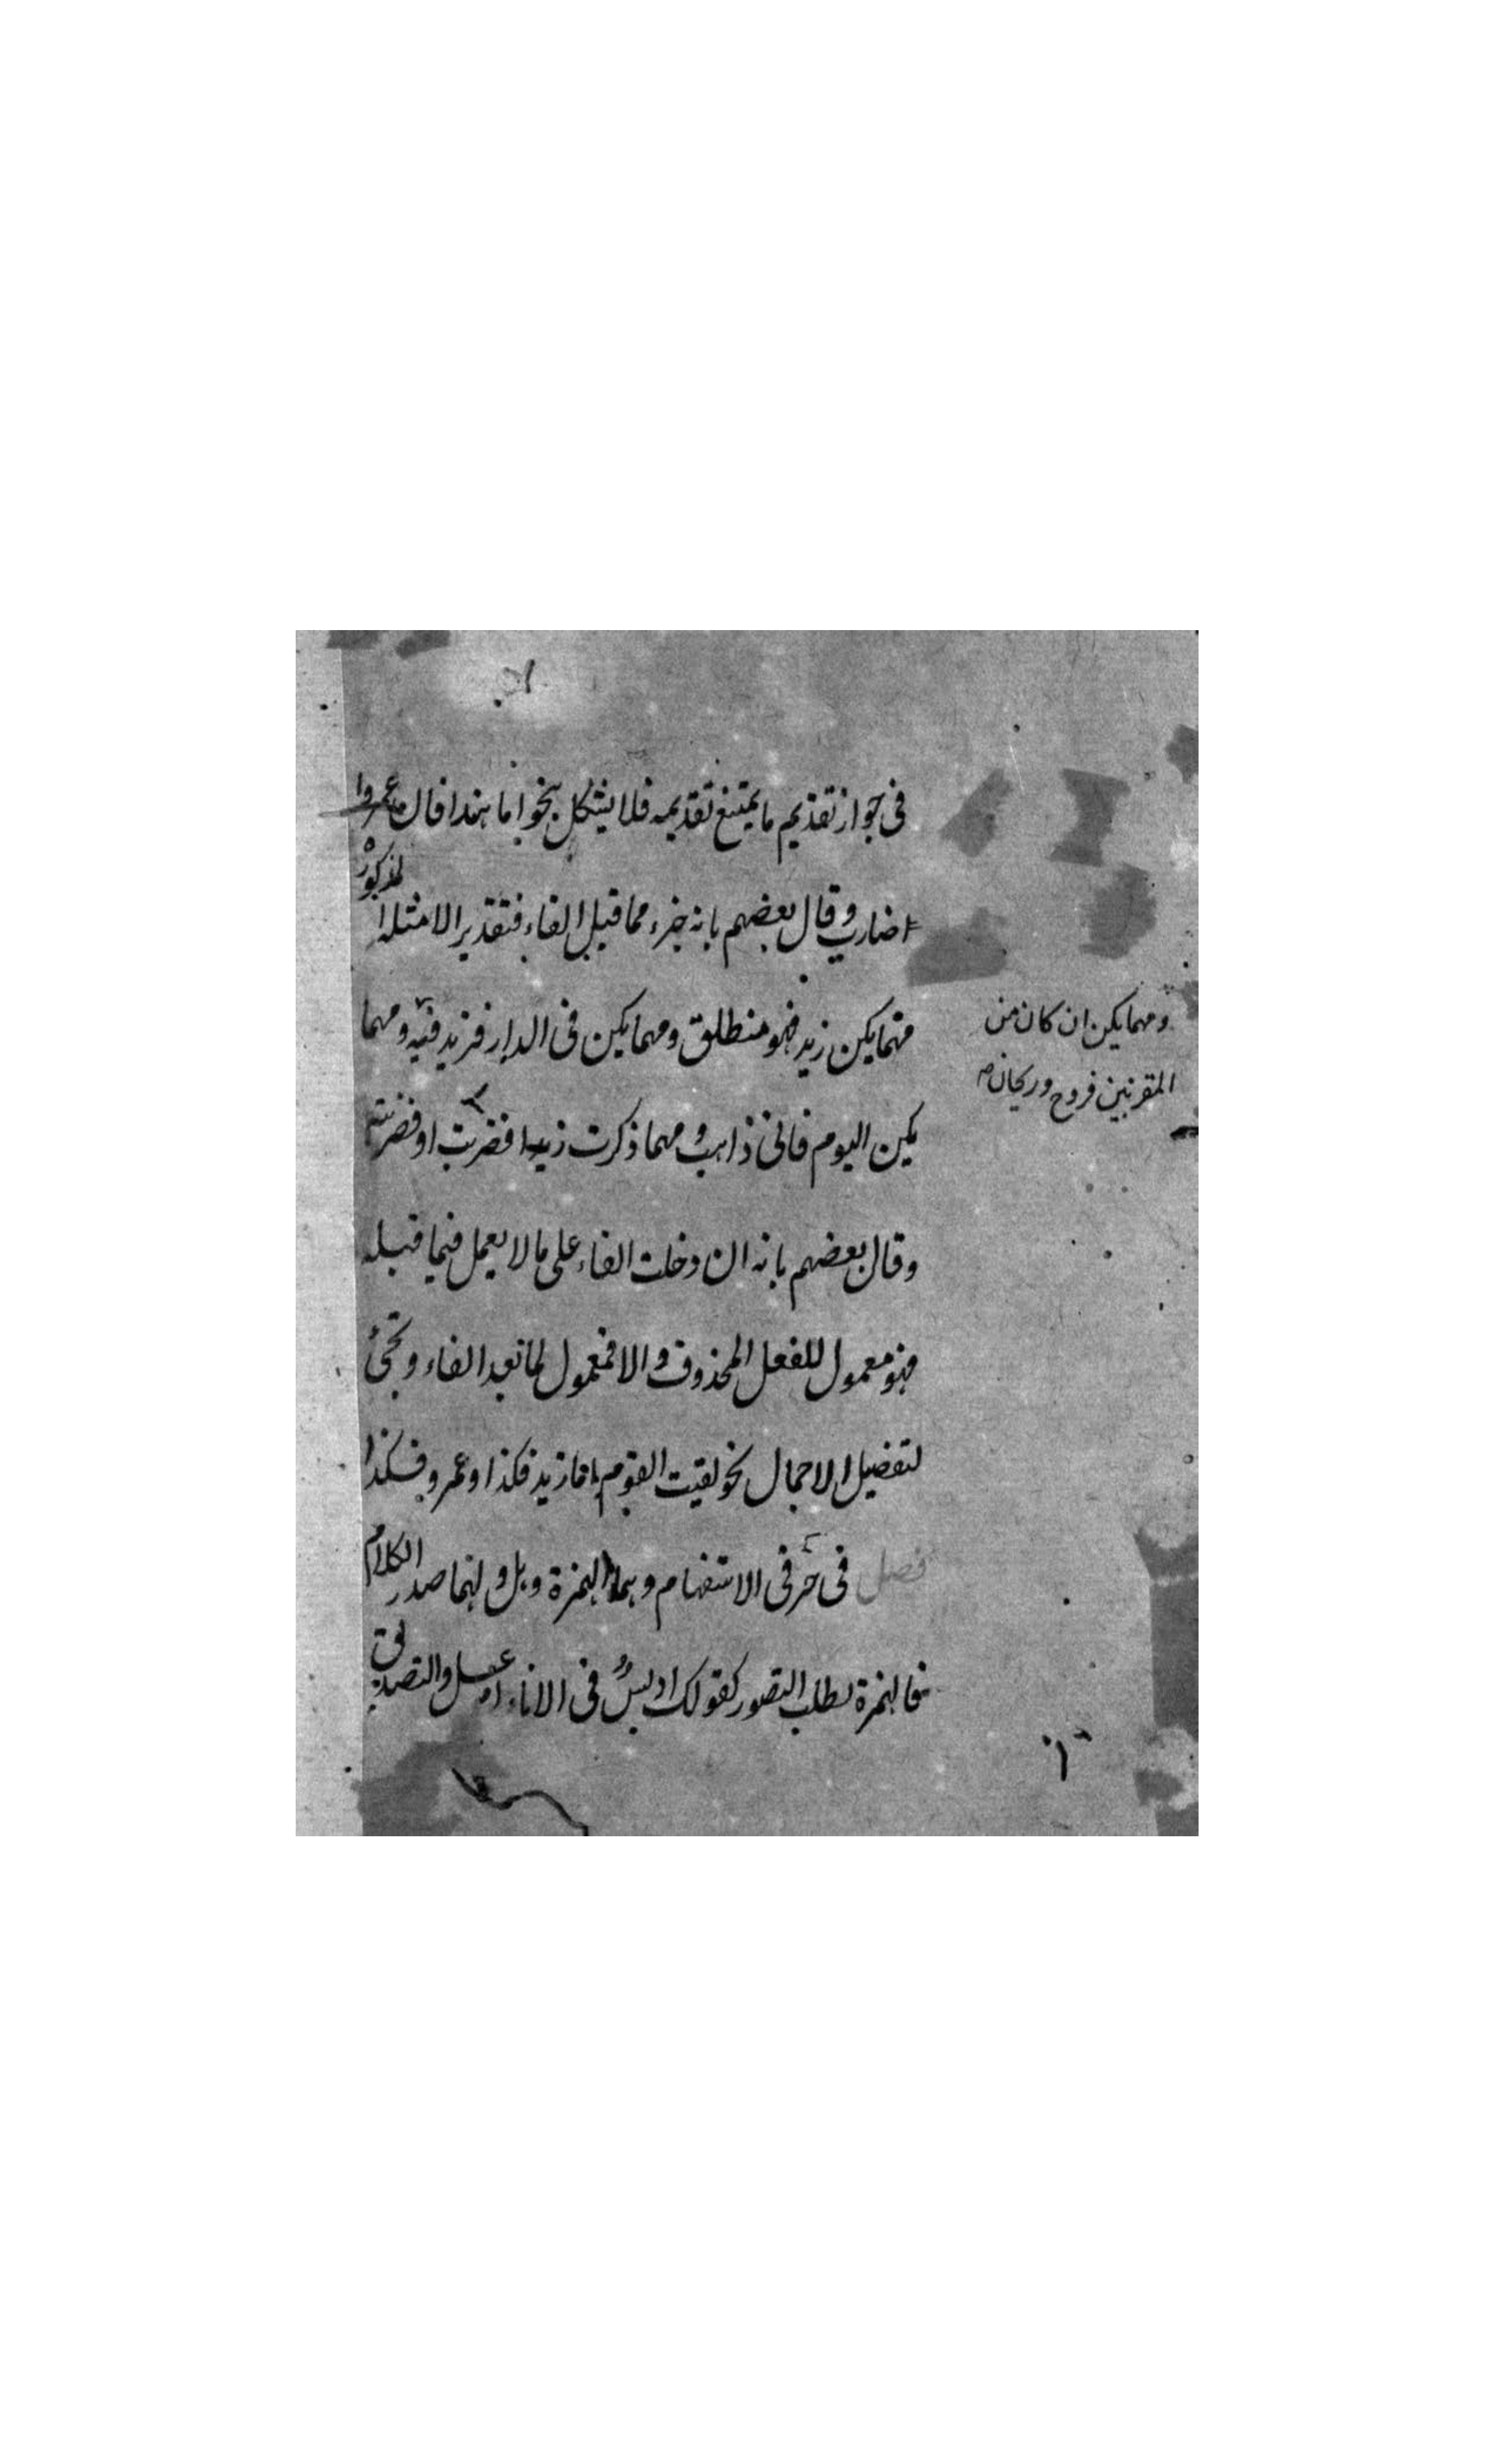 فى جواز تقديم ما يمتنع تقديمه فلا يشكل بنحو اما هندا فان عمروا
ضارب وقال بعضهم بانه جزء مما قبل الفاء فتقدير الامثلة المذكورة
مهما يكن زيد فهو منطلق ومهما يكن فى الدار فزيد فيه ومهما
يكن اليوم فانى ذاهب ومهما ذكرت زيدا فضربت او فضربته
وقال بعضهم بانه ان دخلت الفاء على ما لا يعمل فيما قبله
فهو معمول للفعل المحذوف والا فمعمول لما بعد الفاء وتجئ
لتفصيل الاجمال نحو لقيت القوم اما زيد فكذا وعمرو فكذا
فصل فى حرفى الاستفهام وهما الهمزة وهل ولهما صدر الكلام
فالهمزة لطلب التصور كقولك ادبس فى الاناء ام عسل والتصديق
ومهما يكن ان كان من
المقربين فروح وريحان